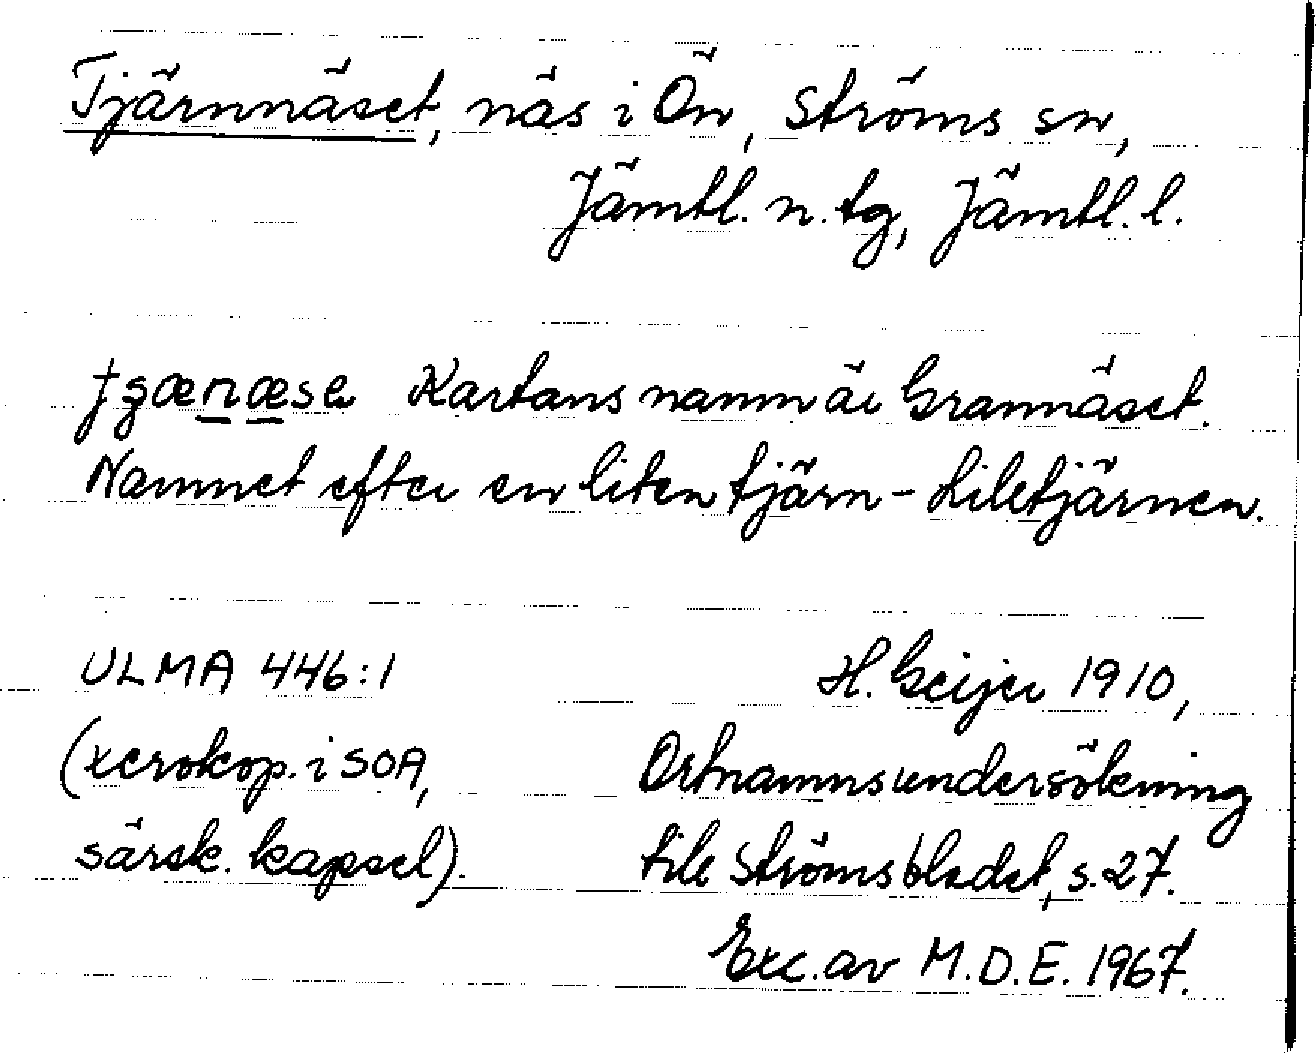 Tjärnnäset, näs i Ön, Ströms sn,
Jämtl. n. tg, Jämtl. l.
Kartans namn är Grannäset.
Namnet efter en liten tjärn - Lilltjärnen.
ULMA 446:1
H. Geijer 1910,
(xerokop. i SOA,
Ortnamnsundersökning
särsk. kapsel).
till Strömsbladet, s. 27.
Exc. av M.D.E. 1967.